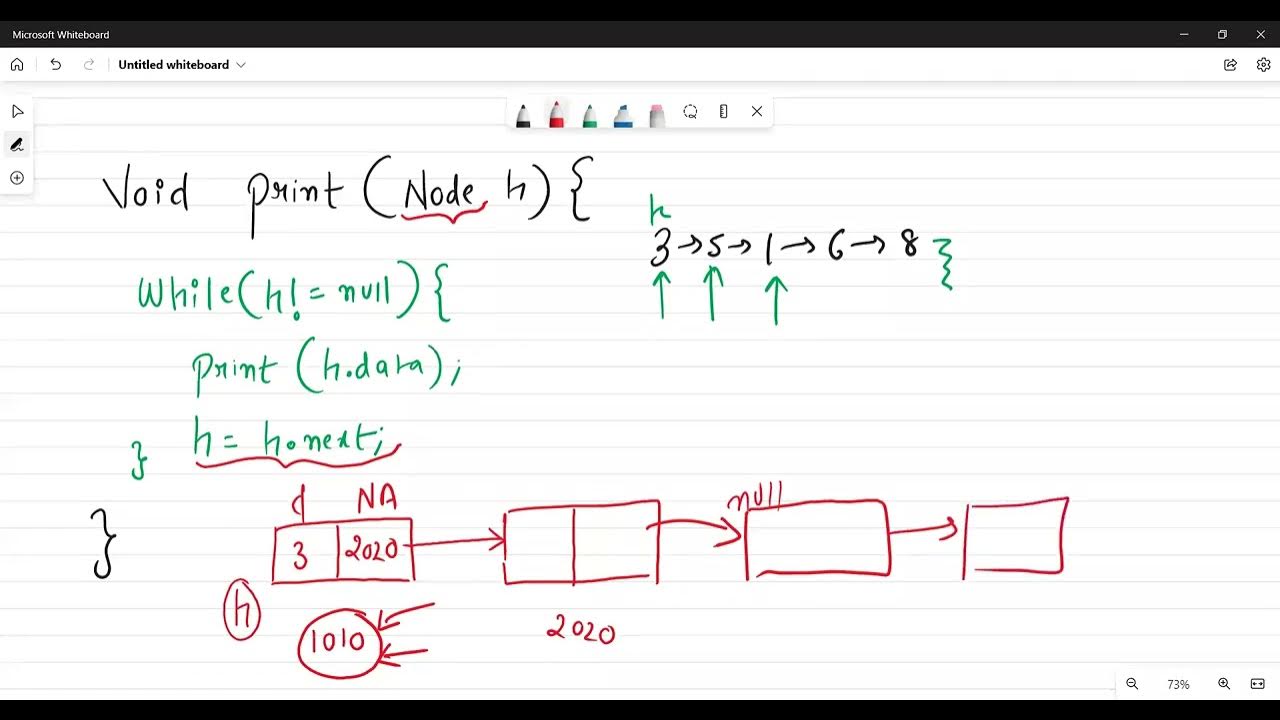 Microsoft Whiteboard
Untitled whiteboard
Void print (Node h) {
h
3 → 5 → 1 → 6 → 8 }
While(h! = null) {
print (h.data);
h = h.next;
}
d NA
null
3 2020
}
h
1010
2020
73%